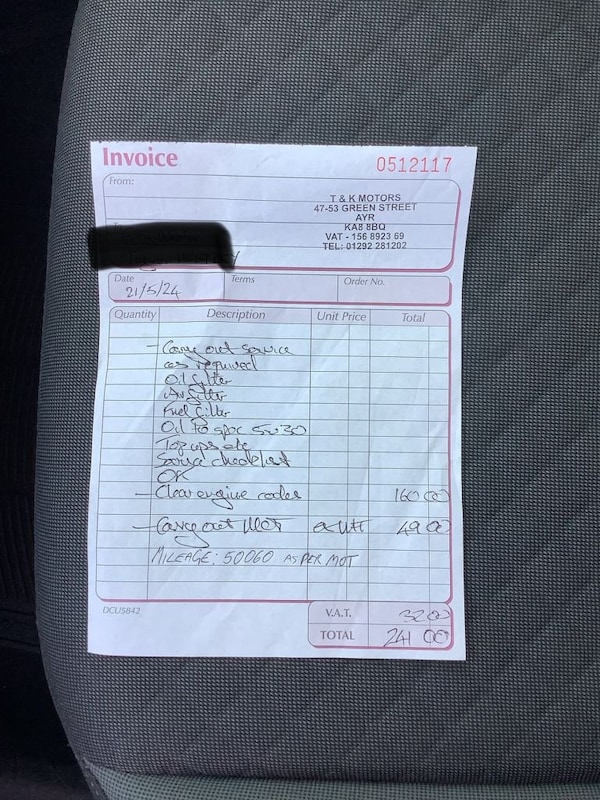 Invoice
0512117
From:
T & K MOTORS
47-53 GREEN STREET
AYR
KA8 8BQ
VAT - 156 8923 69
TEL: 01292 281202
Date
21/5/24
Terms
Order No.
Quantity Description Unit Price Total
- Carry out service
as required
Oil filter
Air filter
Fuel filter
Oil to spec 5w30
Top ups etc
Service checklist
OK
- Clear engine codes 160 00
- Carry out MOT 49 00
MILEAGE: 50060 AS PER MOT
DCU5842
V.A.T. 32 00
TOTAL 241 00